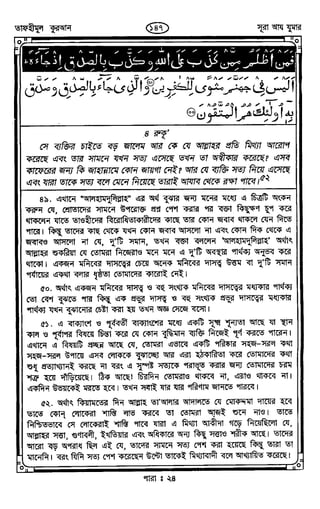 তাফহীমুল কুরআন
১৪৭
সূরা আয যুমার
فَمَنْ أَظْلَمُ مِمَّنْ كَذَبَ عَلَى اللهِ وَكَذَّبَ بِالصِّدْقِ إِذْ جَاءَهُ
أَلَيْسَ فِي جَهَنَّمَ مَثْوًى لِلْكَافِرِينَ وَالَّذِي جَاءَ بِالصِّدْقِ وَصَدَّقَ
بِهِ أُولَئِكَ هُمُ الْمُتَّقُونَ
৪ রুকূ'
সে ব্যক্তির চাইতে বড় জালেম আর কে যে আল্লাহর প্রতি মিথ্যা আরোপ
করেছে এবং তার সামনে যখন সত্য এসেছে তখন তা অস্বীকার করেছে? এসব
কাফেরের জন্য কি জাহান্নামে কোন জায়গা নেই? আর যে ব্যক্তি সত্য নিয়ে এসেছে
এবং যারা তাকে সত্য বলে মেনে নিয়েছে তারাই আযাব থেকে রক্ষা পাবে।৫২
৪৯. এখানে "আলহামদুলিল্লাহ" এর তাৎপর্য অনুধাবনের জন্য মনের মধ্যে এ চিত্রটি অংকন
করুন যে, শ্রোতাদের সামনে উপরোক্ত প্রশ্ন পেশ করার পর বক্তা কিছুক্ষণ চুপ করে
থাকলেন যাতে তাওহীদের বিরোধিতাকারীদের কাছে তার কোন জবাব থাকলে যেন দিতে
পারে। কিন্তু তাদের কাছ থেকে যখন কোন জবাব আসলো না এবং কোন দিক থেকে এ
জবাবও আসলো না যে, দু'টি সমান, তখন বক্তা বললেন 'আলহামদুলিল্লাহ' অর্থাৎ
আল্লাহর শুকরিয়া যে তোমরা নিজেরাও মনে মনে এ দু'টি অবস্থার পার্থক্য অনুভব করে
থাকো। একজন মনিবের দাসত্বের চেয়ে অনেক মনিবের দাসত্ব উত্তম বা দু'টি সমান
পর্যায়ের একথা বলার ধৃষ্টতা তোমাদের কারোই নেই।
৫০. অর্থাৎ একজন মনিবের দাসত্ব ও বহু সংখ্যক মনিবের দাসত্বের মধ্যকার পার্থক্য
তো বেশ বুঝতে পার কিন্তু এক প্রভুর দাসত্ব ও বহু সংখ্যক প্রভুর দাসত্বের মধ্যকার
পার্থক্য যখন বুঝানোর চেষ্টা করা হয় তখন অজ্ঞ সেজে বসো।
৫১. এ বাক্যাংশ ও পূর্ববর্তী বাক্যাংশের মধ্যে একটি সূক্ষ্ম শূন্যতা আছে যা স্থান
কাল ও পূর্বাপর বিষয়ে চিন্তা করে যে কোন বুদ্ধিমান ব্যক্তি নিজেই পূর্ণ করতে পারেন।
এখানে এ বিষয়টি প্রচ্ছন্ন আছে যে, তোমরা এভাবে একটি পরিষ্কার সহজ-সরল কথা
সহজ-সরল উপায়ে এসব লোককে বুঝাচ্ছো আর এরা হঠকারিতা করে তোমাদের কথা
শুধু প্রত্যাখ্যানই করছে না বরং এ সুস্পষ্ট সত্যকে পরাভূত করার জন্য তোমাদের চরম
শত্রু হয়ে দাঁড়িয়েছে। ঠিক আছে। চিরদিন তোমরাও থাকবে না, এরাও থাকবে না।
একদিন উভয়কেই মরতে হবে। তখন সবাই যার যার পরিণাম জানতে পারবে।
৫২. অর্থাৎ কিয়ামতের দিন আল্লাহ তা'আলার আদালতে যে মোকদ্দমা দায়ের হবে
তাতে কোন্ লোকেরা শাস্তি লাভ করবে তা তোমরা আজই শুনে নাও। তাতে
নিশ্চিতভাবে সে লোকেরাই শাস্তি পাবে যারা এ মিথ্যা আকীদা গড়ে নিয়েছিলো যে,
আল্লাহর সত্তা, গুণাবলী, ইখতিয়ার এবং অধিকারে অন্য কিছু সত্তাও শরীক আছে। তাদের
আরো বড় অপরাধ ছিল এই যে, তাদের সামনে সত্য পেশ করা হয়েছে কিন্তু তারা তা
মানেনি। বরং যিনি সত্য পেশ করেছেন উল্টো তাকেই মিথ্যাবাদী বলে আখ্যায়িত করেছে।
পারা : ২৪